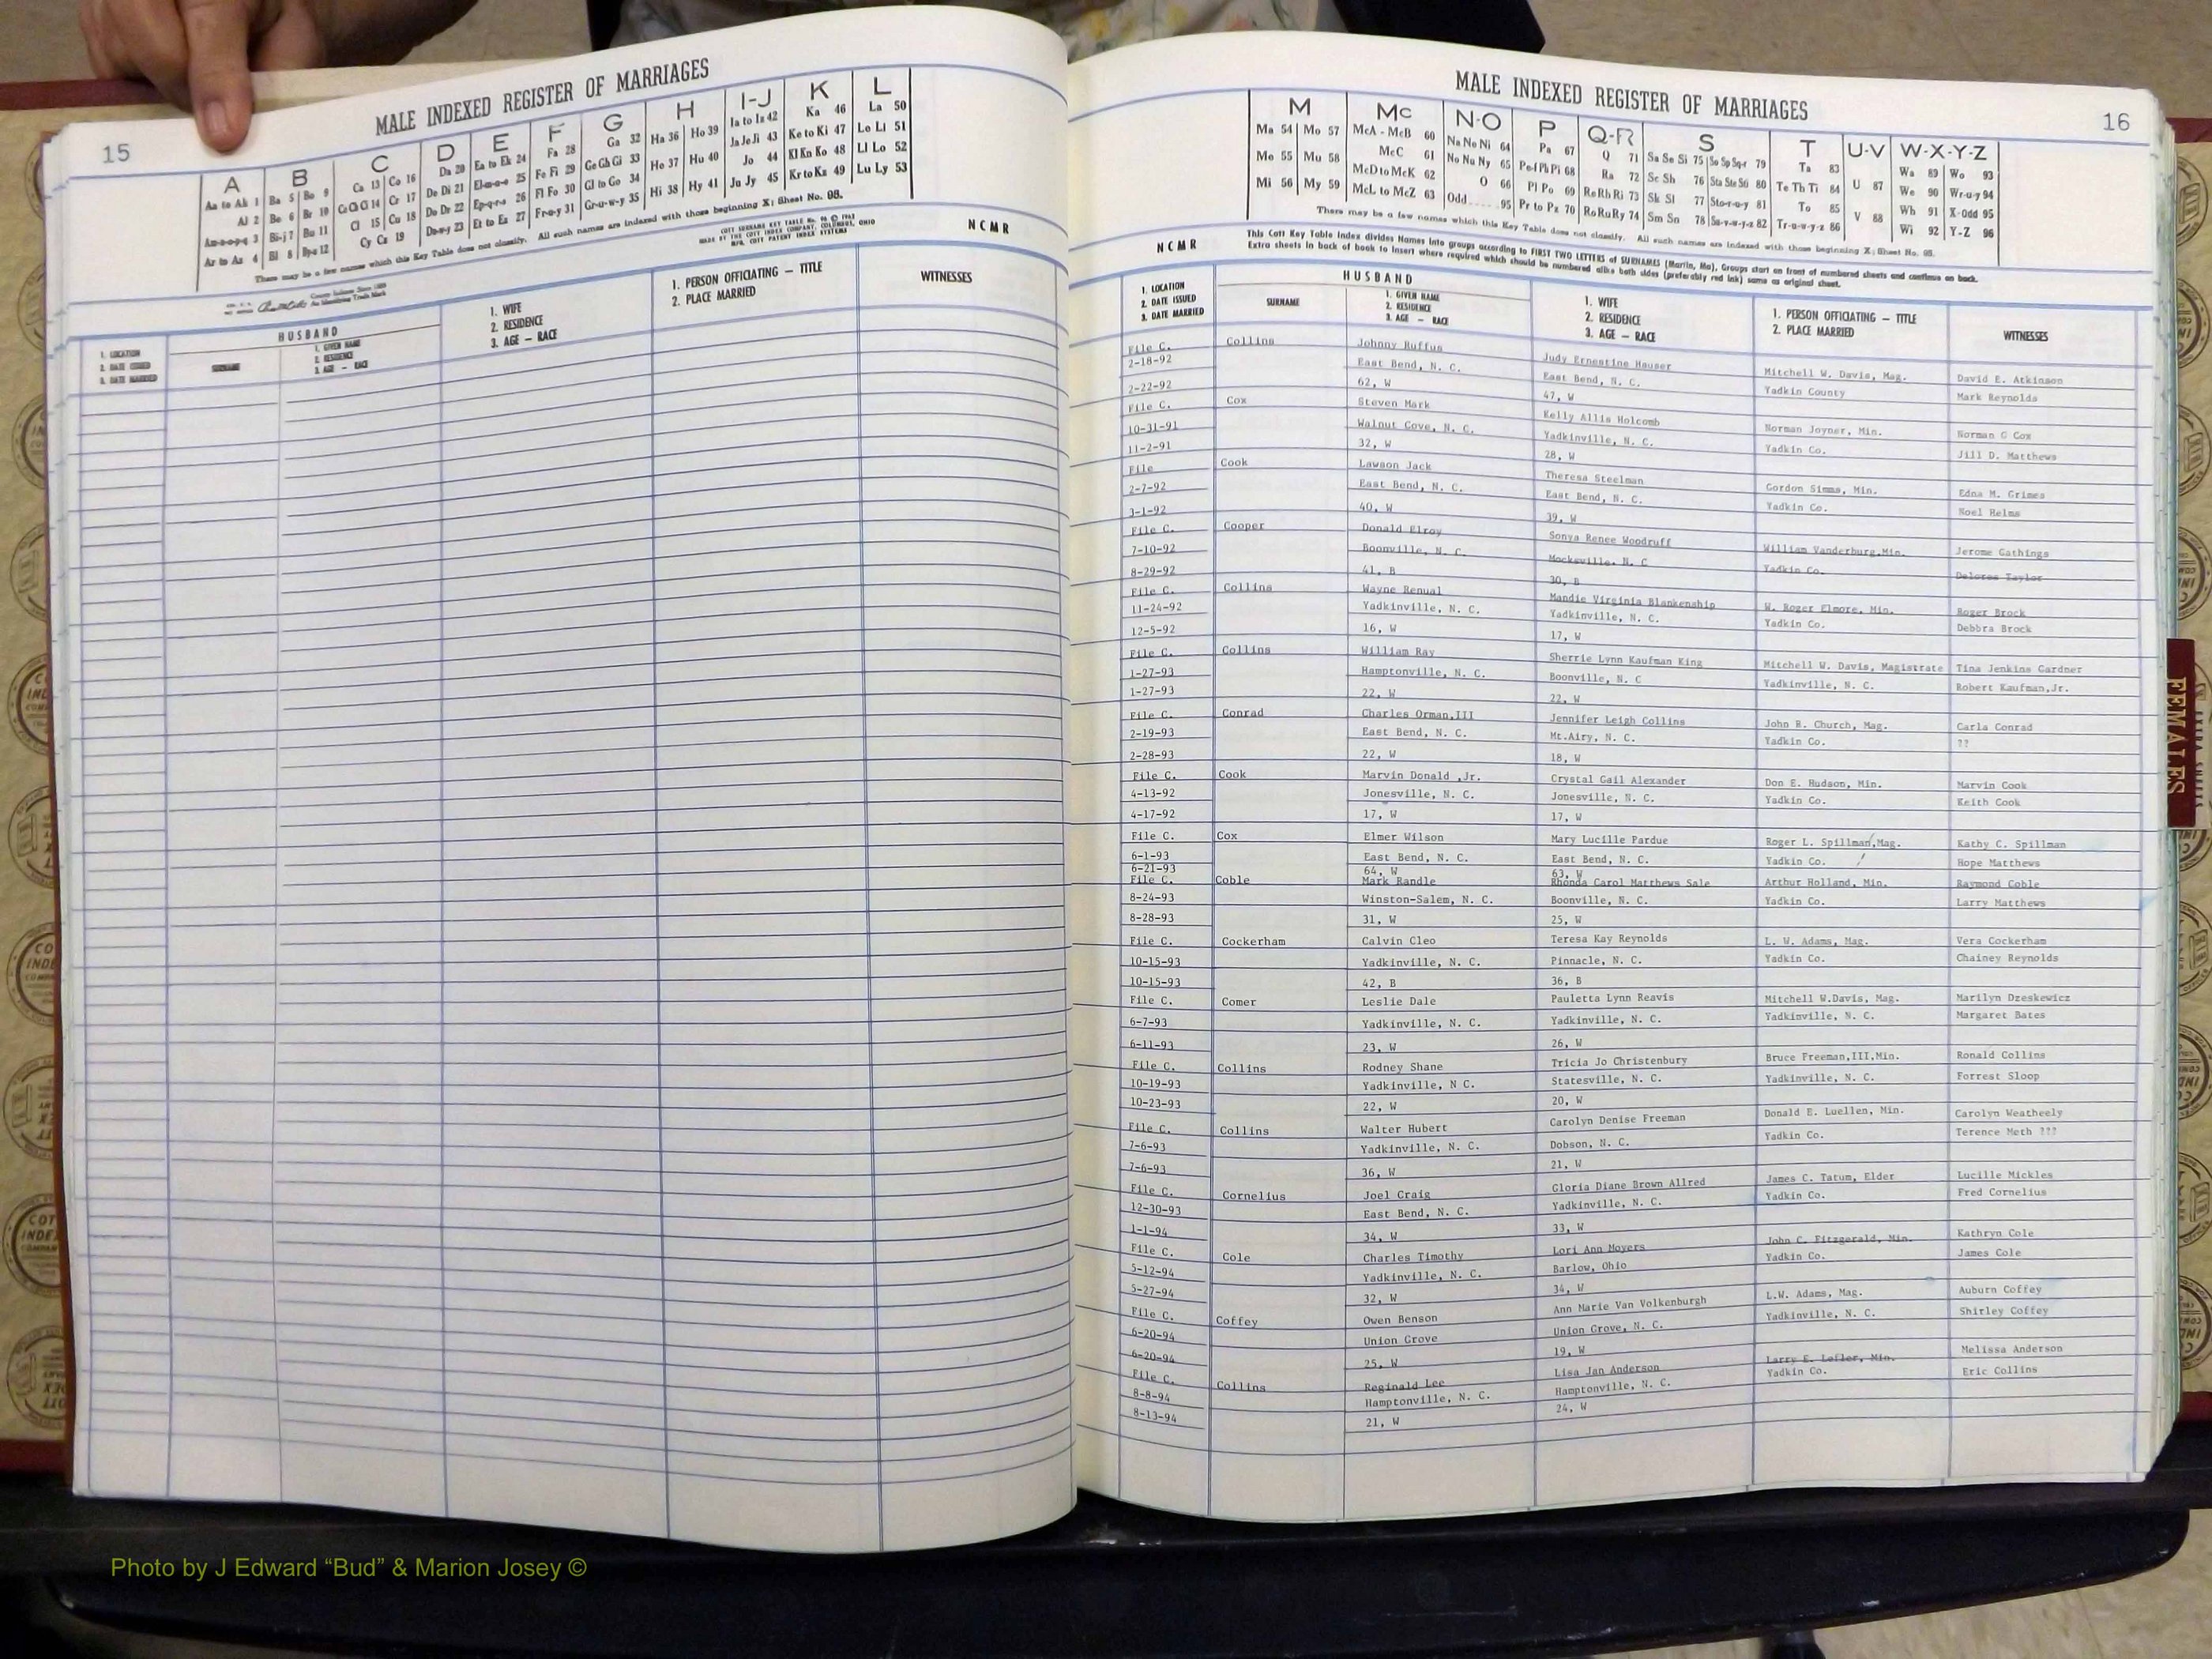 15
MALE INDEXED REGISTER OF MARRIAGES
A B C D E F G H I-J K L
Aa to Ak 1 Ba 5 Bo 9 Ca 13 Co 16 Da 20 Ea to Ek 24 Fa 28 Ga 32 Ha 36 Ho 39 Ia to Iz 42 Ka 46 La 50
Al 2 Be 6 Br 10 Ce Ch Ci 14 Cr 17 De Di 21 El-m-n-o 25 Fe Fi 29 Ge Gh Gi 33 He 37 Hu 40 Ja Je Ji 43 Ke to Ki 47 Le Li 51
Am-n-o-p-q 3 Bi-j 7 Bu 11 Cl 15 Cu 18 Do Dr 22 Ep-q-r-s 26 Fl Fo 30 Gl to Go 34 Hi 38 Hy 41 Jo 44 Kl Kn Ko 48 Ll Lo 52
Ar to Az 4 Bl 8 By-z 12 Cy Cz 19 Du-w-y 23 Et to Ez 27 Fr-u-y 31 Gr-u-w-y 35 Ju Jy 45 Kr to Kz 49 Lu Ly 53
There may be a few names which this Key Table does not classify. All such names are indexed with those beginning X; Sheet No. 95.
COTT SURNAME KEY TABLE No. 96 © 1962
MADE BY THE COTT INDEX COMPANY, COLUMBUS, OHIO
MFR. COTT PATENT INDEX SYSTEMS
NCMR
County Indexes Since 1888
An Identifying Trade Mark
1. LOCATION
2. DATE ISSUED
3. DATE MARRIED
HUSBAND
SURNAME
1. GIVEN NAME
2. RESIDENCE
3. AGE — RACE
1. WIFE
2. RESIDENCE
3. AGE — RACE
1. PERSON OFFICIATING — TITLE
2. PLACE MARRIED
WITNESSES
MALE INDEXED REGISTER OF MARRIAGES
16
M Mc N-O P Q-R S T U-V W-X-Y-Z
Ma 54 Mo 57 McA - McB 60 Na Ne Ni 64 Pa 67 Q 71 Sa Se Si 75 So Sp Sq-r 79 Ta 83 U 87 Wa 89 Wo 93
Me 55 Mu 58 McC 61 No Nu Ny 65 Pe-f Ph Pi 68 Ra 72 Sc Sh 76 Sta Ste Sti 80 Te Th Ti 84 V 88 We 90 Wr-u-y 94
Mi 56 My 59 McD to McK 62 O 66 Pl Po 69 Re Rh Ri 73 Sk Sl 77 Sto-r-u-y 81 To 85 Wh 91 X-Odd 95
McL to McZ 63 Odd 95 Pr to Pz 70 Ro Ru Ry 74 Sm Sn 78 Su-v-w-y-z 82 Tr-u-w-y-z 86 Wi 92 Y-Z 96
There may be a few names which this Key Table does not classify. All such names are indexed with those beginning X; Sheet No. 95.
NCMR
This Cott Key Table Index divides Names into groups according to FIRST TWO LETTERS of SURNAMES (Martin, Ma), Groups start on front of numbered sheets and continue on back.
Extra sheets in back of book to insert where required which should be numbered alike both sides (preferably red ink) same as original sheet.
1. LOCATION
2. DATE ISSUED
3. DATE MARRIED
HUSBAND
SURNAME
1. GIVEN NAME
2. RESIDENCE
3. AGE — RACE
1. WIFE
2. RESIDENCE
3. AGE — RACE
1. PERSON OFFICIATING — TITLE
2. PLACE MARRIED
WITNESSES
File C. Collins Johnny Ruffus Judy Ernestine Hauser Mitchell W. Davis, Mag. David E. Atkinson
2-18-92 East Bend, N. C. East Bend, N. C. Yadkin County Mark Reynolds
2-22-92 62, W 47, W
File C. Cox Steven Mark Kelly Allis Holcomb Norman Joyner, Min. Norman G Cox
10-31-91 Walnut Cove, N. C. Yadkinville, N. C. Yadkin Co. Jill D. Matthews
11-2-91 32, W 28, W
File Cook Lawson Jack Theresa Steelman Gordon Simms, Min. Edna M. Grimes
2-7-92 East Bend, N. C. East Bend, N. C. Yadkin Co. Noel Helms
3-1-92 40, W 39, W
File C. Cooper Donald Elroy Sonya Renee Woodruff William Vanderburg,Min. Jerome Gathings
7-10-92 Boonville, N. C. Mocksville. N. C Yadkin Co. Delores Taylor
8-29-92 41, B 30, B
File C. Collins Wayne Renual Mandie Virginia Blankenship W. Roger Elmore, Min. Roger Brock
11-24-92 Yadkinville, N. C. Yadkinville, N. C. Yadkin Co. Debbra Brock
12-5-92 16, W 17, W
File C. Collins William Ray Sherrie Lynn Kaufman King Mitchell W. Davis, Magistrate Tina Jenkins Gardner
1-27-93 Hamptonville, N. C. Boonville, N. C Yadkinville, N. C. Robert Kaufman,Jr.
1-27-93 22, W 22, W
File C. Conrad Charles Orman,III Jennifer Leigh Collins John R. Church, Mag. Carla Conrad
2-19-93 East Bend, N. C. Mt.Airy, N. C. Yadkin Co. ??
2-28-93 22, W 18, W
File C. Cook Marvin Donald ,Jr. Crystal Gail Alexander Don E. Hudson, Min. Marvin Cook
4-13-92 Jonesville, N. C. Jonesville, N. C. Yadkin Co. Keith Cook
4-17-92 17, W 17, W
File C. Cox Elmer Wilson Mary Lucille Pardue Roger L. Spillman,Mag. Kathy C. Spillman
6-1-93 East Bend, N. C. East Bend, N. C. Yadkin Co. Hope Matthews
6-21-93 64, W 63, W
File C. Coble Mark Randle Rhonda Carol Matthews Sale Arthur Holland, Min. Raymond Coble
8-24-93 Winston-Salem, N. C. Boonville, N. C. Yadkin Co. Larry Matthews
8-28-93 31, W 25, W
File C. Cockerham Calvin Cleo Teresa Kay Reynolds L. W. Adams, Mag. Vera Cockerham
10-15-93 Yadkinville, N. C. Pinnacle, N. C. Yadkin Co. Chainey Reynolds
10-15-93 42, B 36, B
File C. Comer Leslie Dale Pauletta Lynn Reavis Mitchell W.Davis, Mag. Marilyn Dzeskewicz
6-7-93 Yadkinville, N. C. Yadkinville, N. C. Yadkinville, N. C. Margaret Bates
6-11-93 23, W 26, W
File C. Collins Rodney Shane Tricia Jo Christenbury Bruce Freeman,III,Min. Ronald Collins
10-19-93 Yadkinville, N C. Statesville, N. C. Yadkinville, N. C. Forrest Sloop
10-23-93 22, W 20, W
File C. Collins Walter Hubert Carolyn Denise Freeman Donald E. Luellen, Min. Carolyn Weatheely
7-6-93 Yadkinville, N. C. Dobson, N. C. Yadkin Co. Terence Meth ???
7-6-93 36, W 21, W
File C. Cornelius Joel Craig Gloria Diane Brown Allred James C. Tatum, Elder Lucille Mickles
12-30-93 East Bend, N. C. Yadkinville, N. C. Yadkin Co. Fred Cornelius
1-1-94 34, W 33, W
File C. Cole Charles Timothy Lori Ann Moyers John C. Fitzgerald, Min. Kathryn Cole
5-12-94 Yadkinville, N. C. Barlow, Ohio Yadkin Co. James Cole
5-27-94 32, W 34, W
File C. Coffey Owen Benson Ann Marie Van Volkenburgh L.W. Adams, Mag. Auburn Coffey
6-20-94 Union Grove Union Grove, N. C. Yadkinville, N. C. Shirley Coffey
6-20-94 25, W 19, W
File C. Collins Reginald Lee Lisa Jan Anderson Larry E. Lefler, Min. Melissa Anderson
8-8-94 Hamptonville, N. C. Hamptonville, N. C. Yadkin Co. Eric Collins
8-13-94 21, W 24, W
FEMALES
Photo by J Edward “Bud” & Marion Josey ©